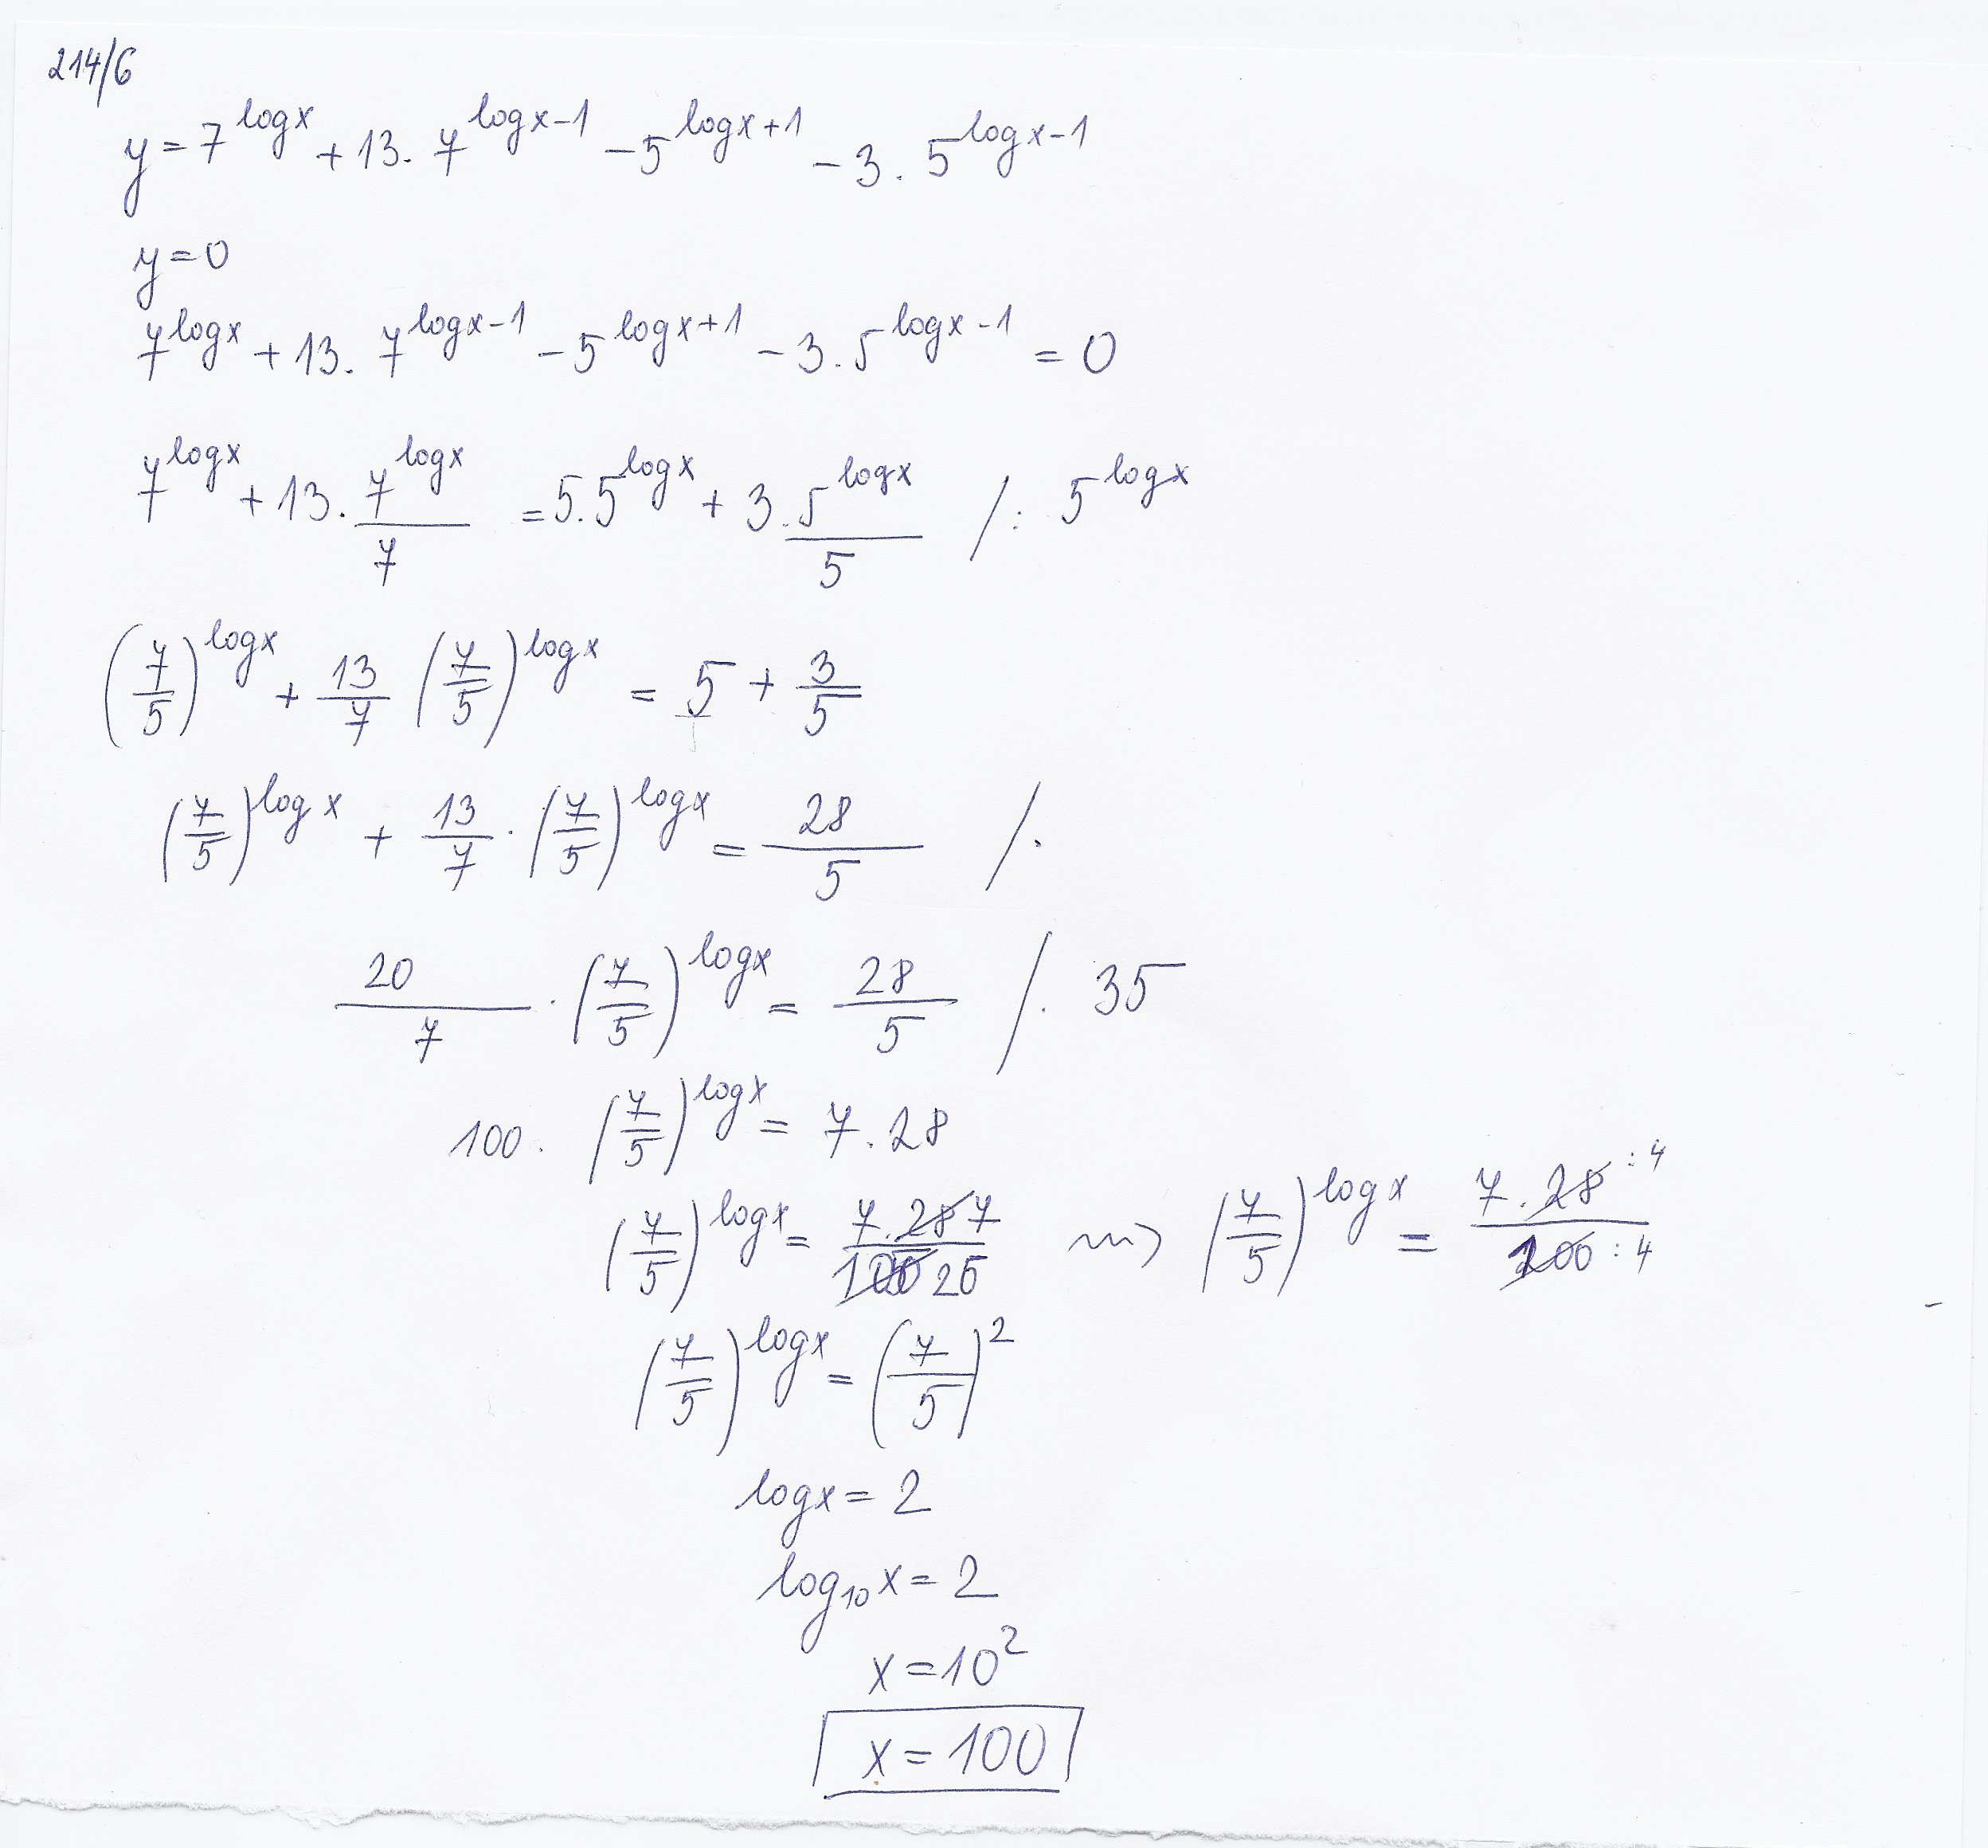 214/6
y = 7^{log x} + 13 · 7^{log x - 1} - 5^{log x + 1} - 3 · 5^{log x - 1}
y = 0
7^{log x} + 13 · 7^{log x - 1} - 5^{log x + 1} - 3 · 5^{log x - 1} = 0
7^{log x} + 13 · \frac{7^{log x}}{7} = 5 · 5^{log x} + 3 · \frac{5^{log x}}{5} / : 5^{log x}
(\frac{7}{5})^{log x} + \frac{13}{7} (\frac{7}{5})^{log x} = 5 + \frac{3}{5}
(\frac{7}{5})^{log x} + \frac{13}{7} · (\frac{7}{5})^{log x} = \frac{28}{5} / ·
\frac{20}{7} · (\frac{7}{5})^{log x} = \frac{28}{5} / · 35
100 · (\frac{7}{5})^{log x} = 7 · 28
(\frac{7}{5})^{log x} = \frac{7 · 28 7}{100 25} ⇝ (\frac{7}{5})^{log x} = \frac{7 · 28 : 4}{100 : 4}
(\frac{7}{5})^{log x} = (\frac{7}{5})^2
log x = 2
log_{10} x = 2
x = 10^2
x = 100